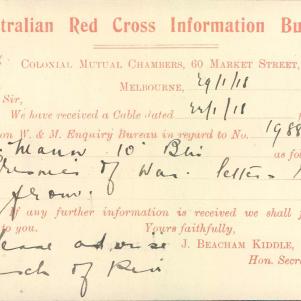 tralian Red Cross Information Bu
Colonial Mutual Chambers, 60 Market Street,
Melbourne, 29/1/18
Sir,
We have received a Cable dated 22/1/18
on W. & M. Enquiry Bureau in regard to No. 1988
10 Bn as fo
Prisoner of War. letters
from.
If any further information is received we shall f
to you. Yours faithfully,
Please advise J. BEACHAM KIDDLE,
of Kin Hon. Secre